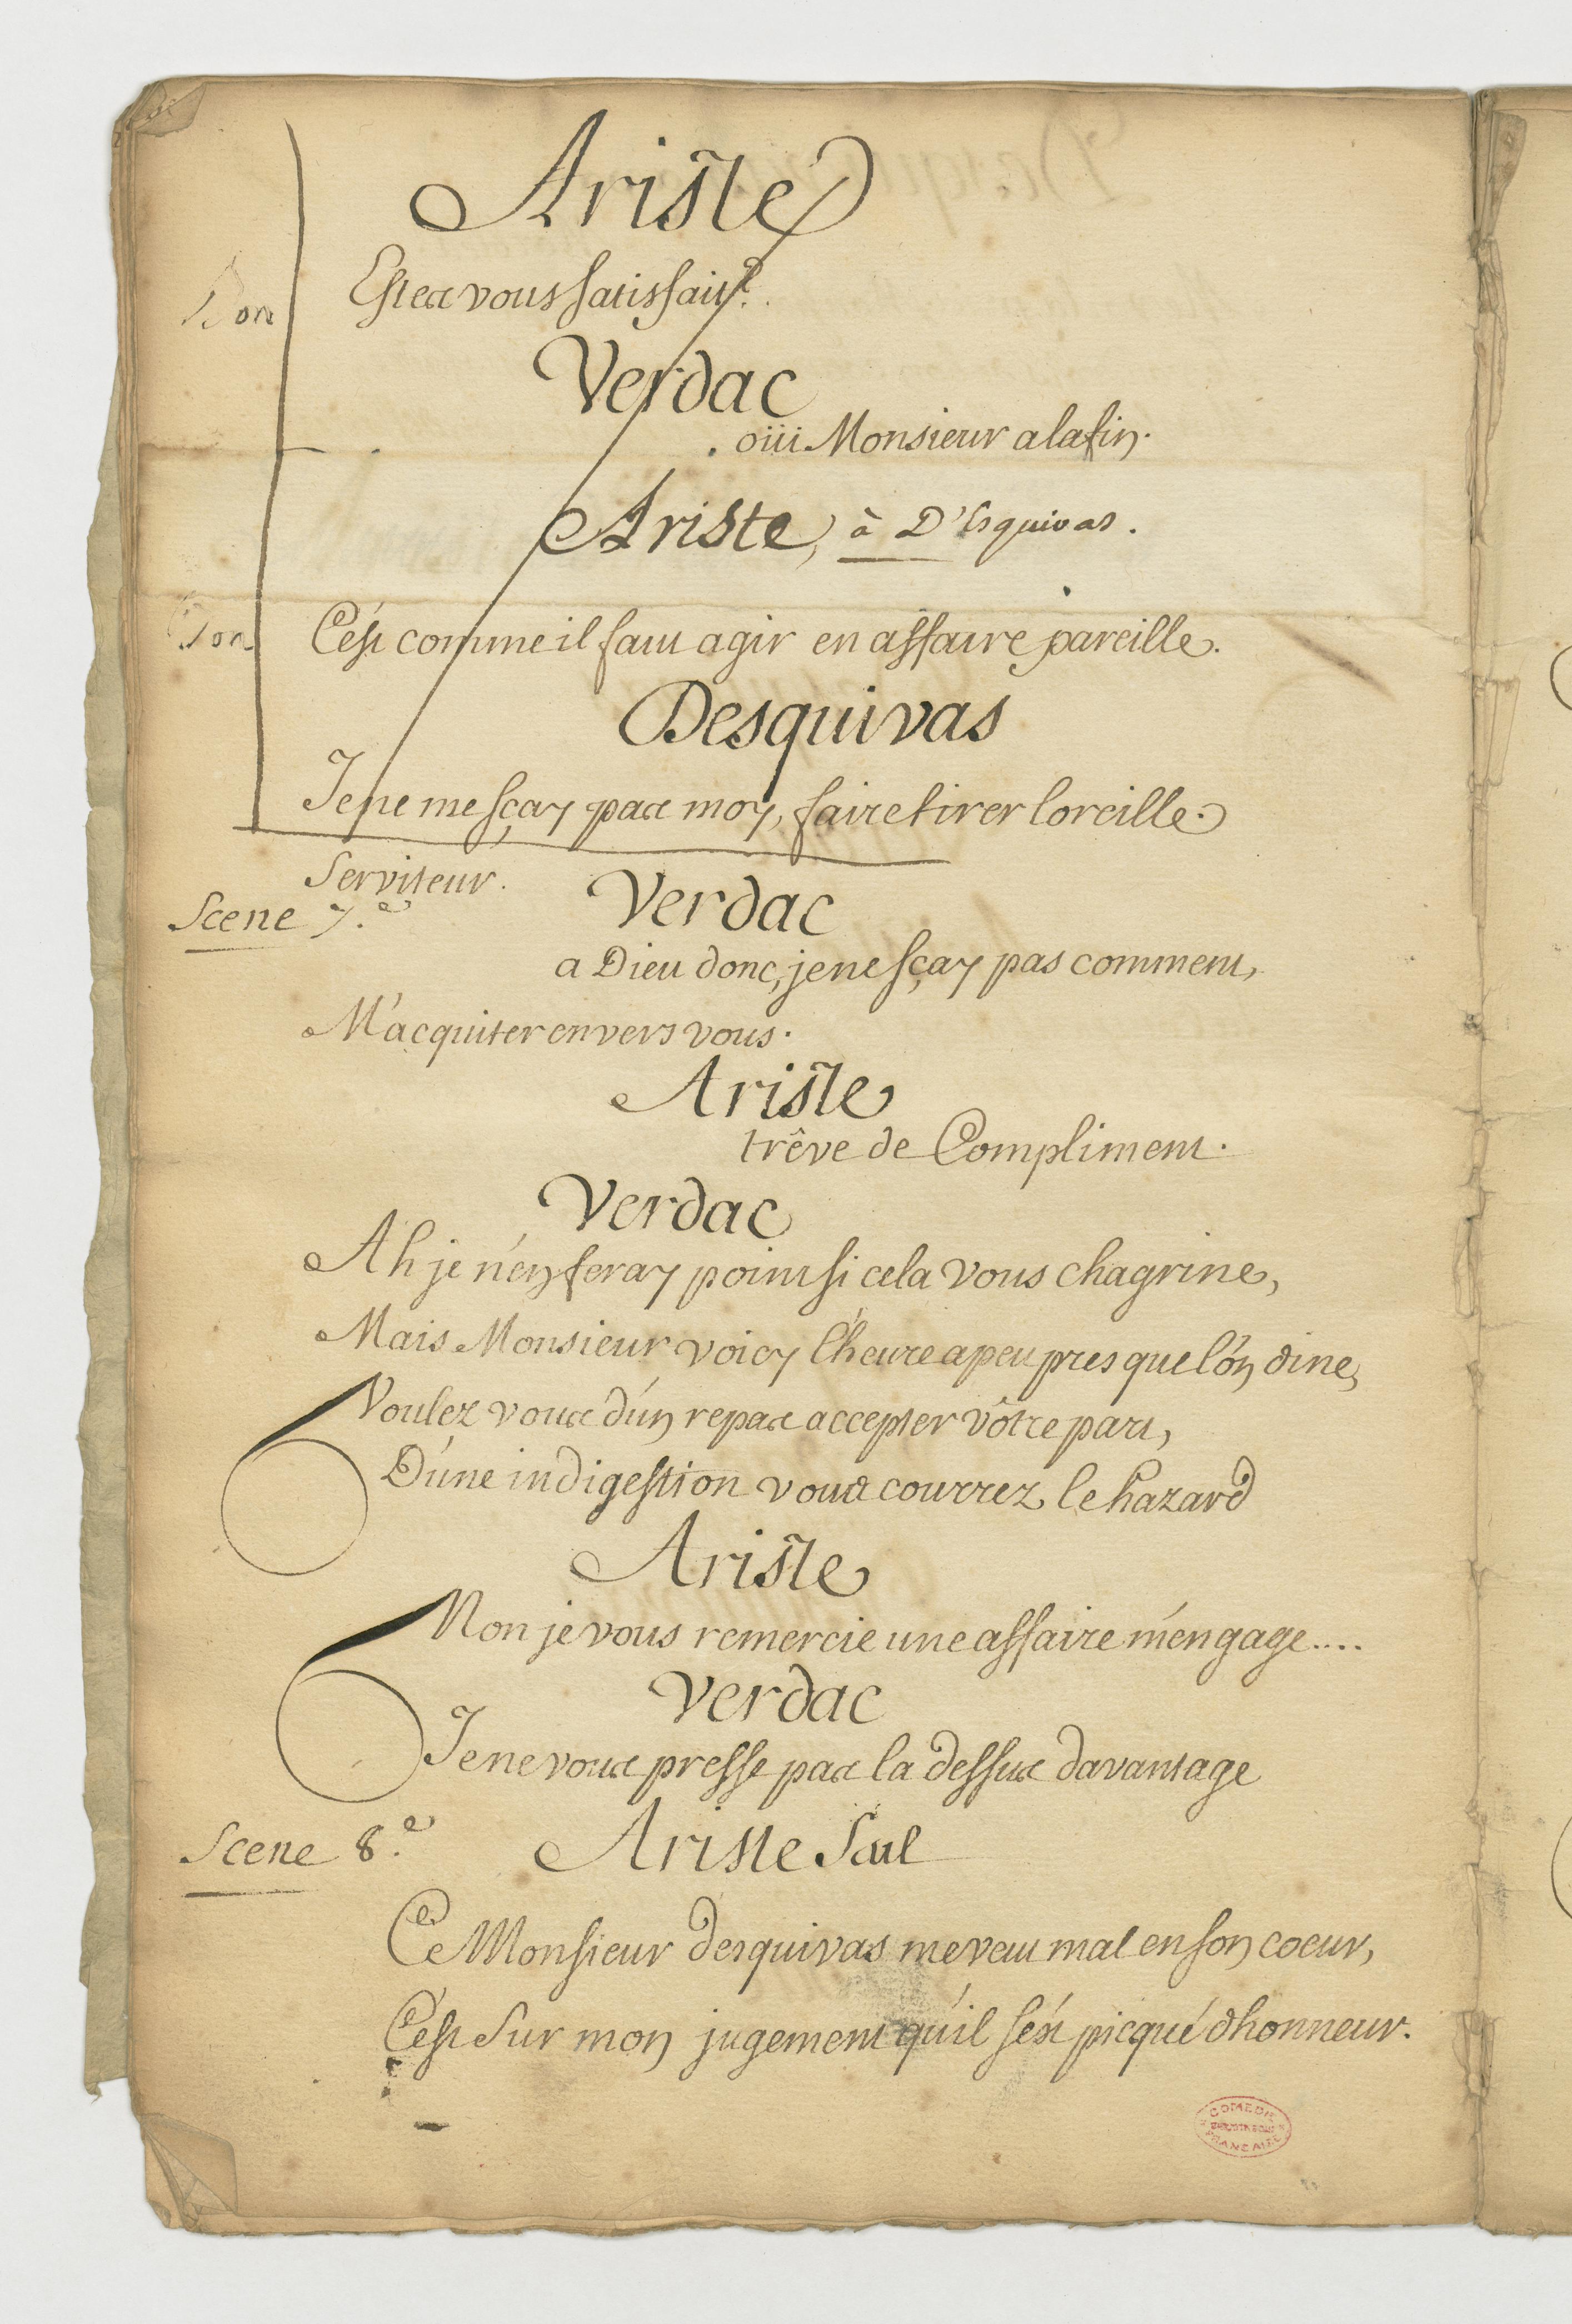 Ariste
Bon
Estes vous satisfait?
Verdac
oüi Monsieur a la fin.
Ariste, à D'Esquivas.
Bon
C'est comme il faut agir en affaire pareille.
Desquivas
Je ne me sçay pas moy, faire tirer loreille.
Serviteur.
Scene 7.e
Verdac
a Dieu donc, je ne sçay pas comment,
M'acquiter envers vous.
Ariste
trêve de Compliment.
Verdac
Ah je n'en feray point si cela vous chagrine,
Mais Monsieur voicy l'heure a peu pres que l'on dine,
Voulez vous d'un repas accepter vôtre part,
D'une indigestion vous courrez le hazard
Ariste
Non je vous remercie une affaire m'engage....
Verdac
Je ne vous presse pas la dessus davantage
Scene 8.e
Ariste Seul
Ce Monsieur desquivas me veut mal en son coeur,
C'est Sur mon jugement qu'il s'est picqué dhonneur.
COMEDIE FRANCAISE